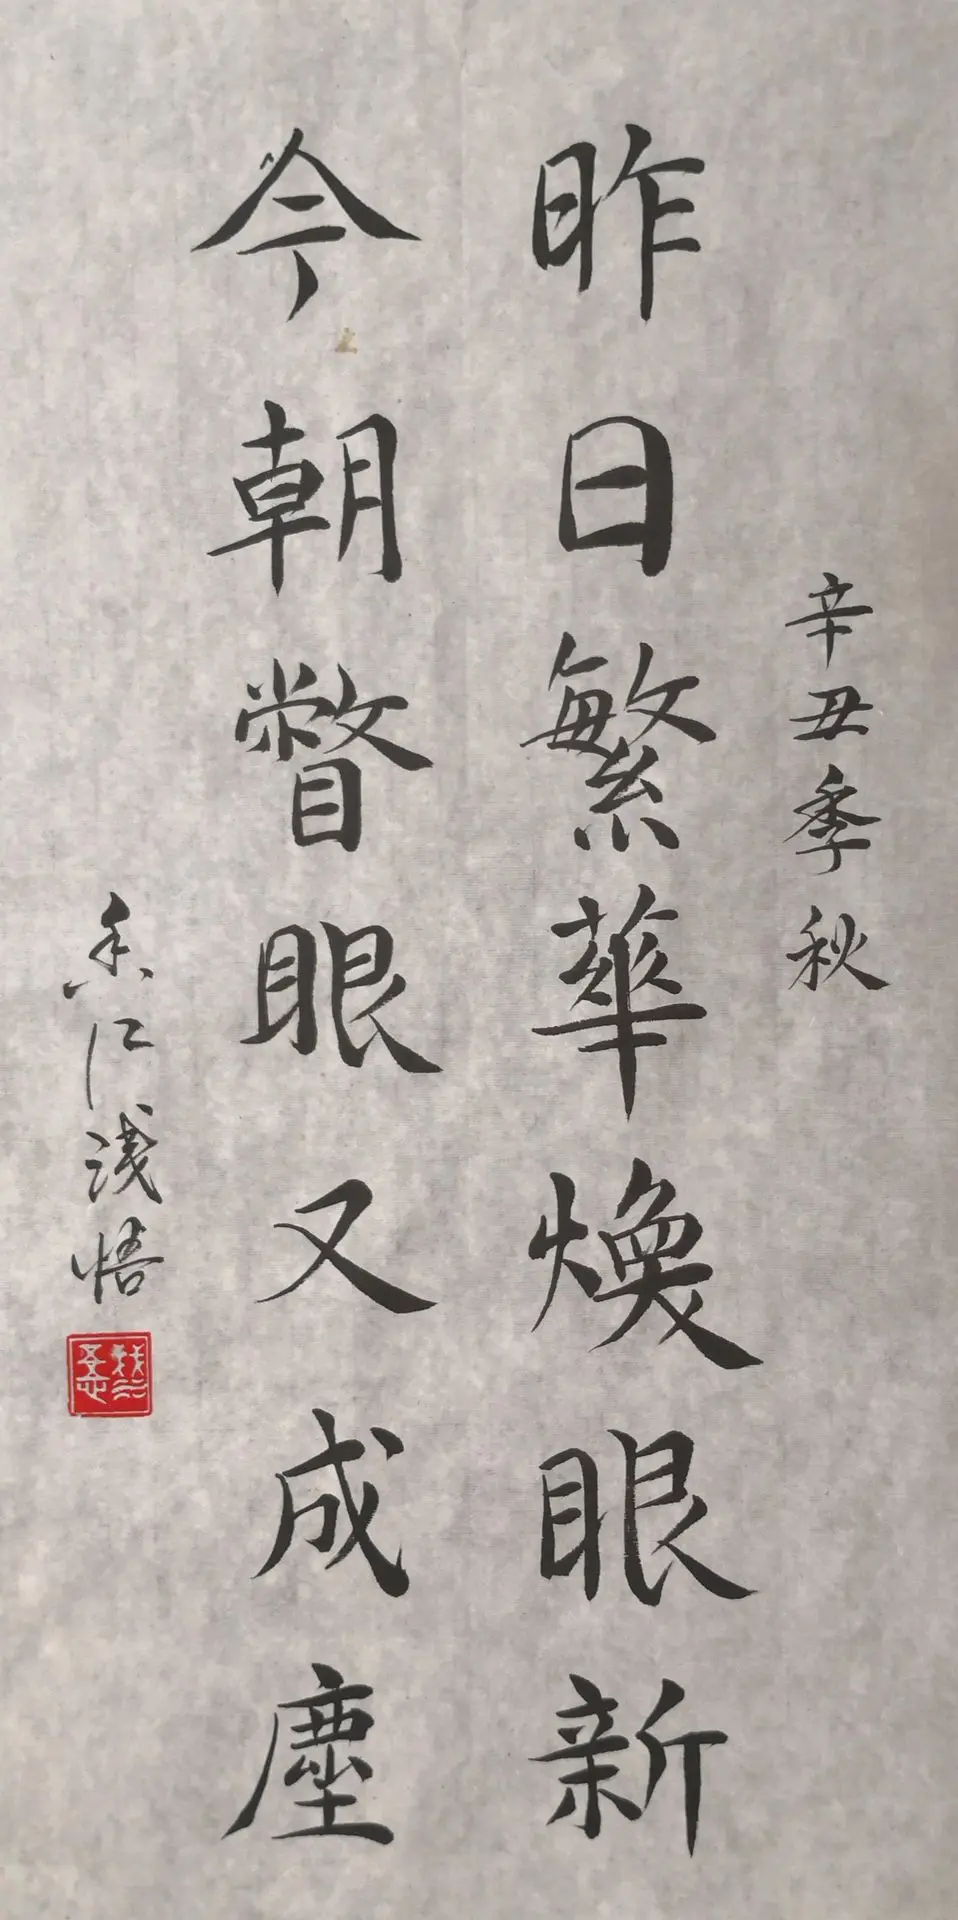 辛丑季秋
昨日繁華煥眼新
今朝瞥眼又成塵